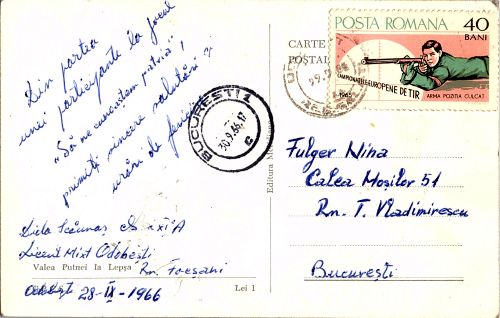 Din partea
unei participante la jocul
"Să ne cunoaștem patria"!
primiți sincere salutări și
urări de
cl. a XI-a A
Liceul Mixt Odobești
Rn. Focșani
Odobești 28-IX-1966
Valea Putnei la Lepșa
Lei 1
Editura
CARTE
POȘTAL
POSTA ROMANA 40
BANI
CAMPIONATELE EUROPENE DE TIR
1965
ARMA POZITIA CULCAT
BUCUREȘTI 1
30.9.66.17
C
Fulger Nina
Calea Moșilor 51
Rn. T. Vladimirescu
București